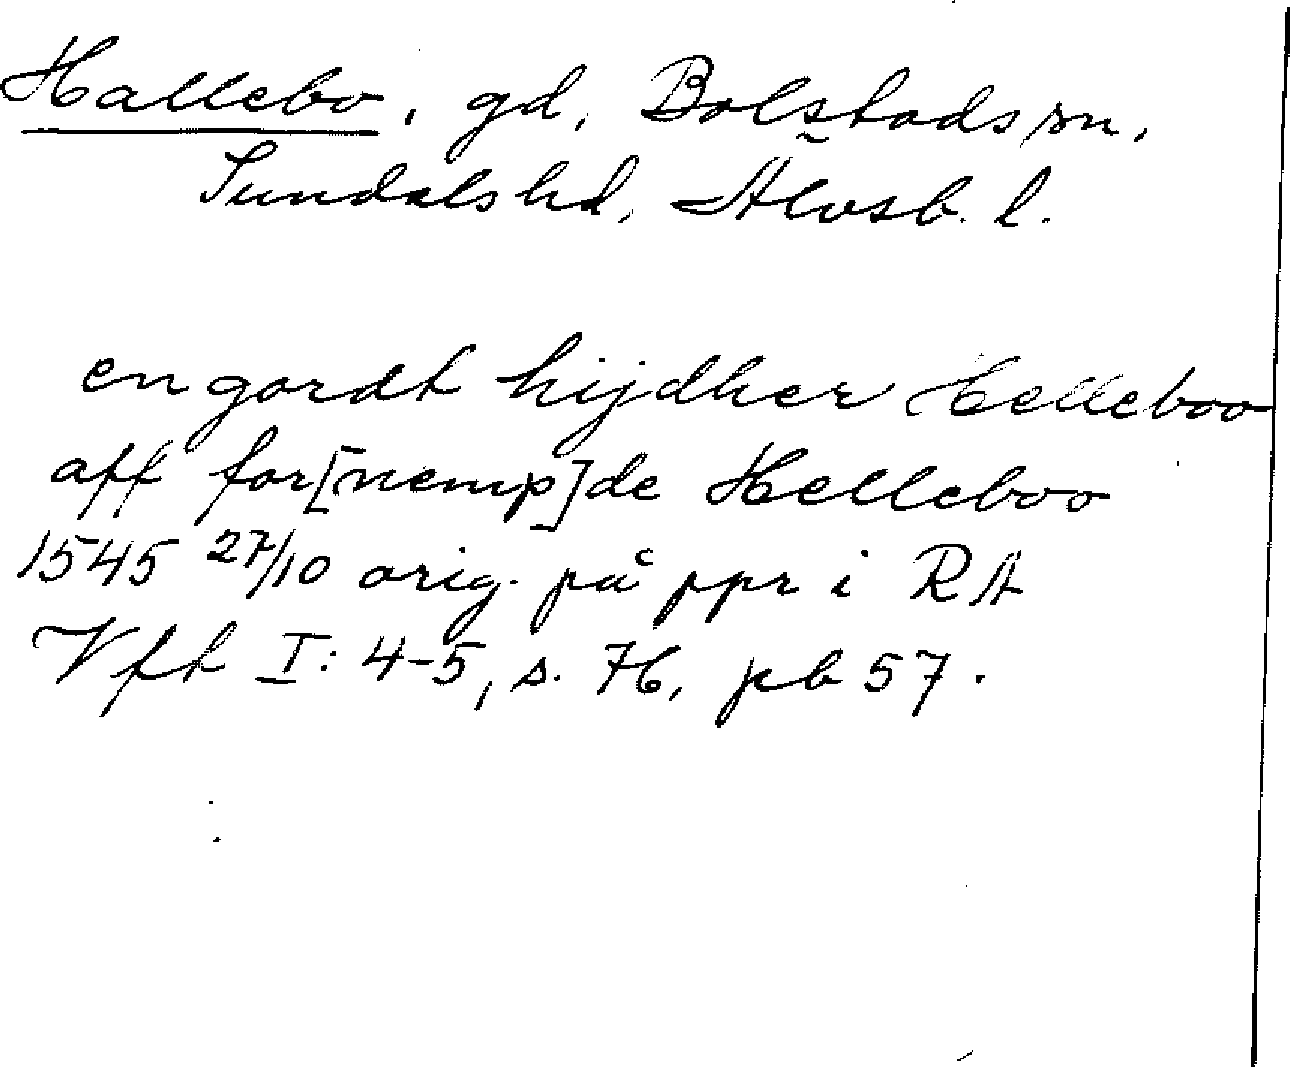 Hallebo, gd, Bolstads sn,
Sundals hd, Älvsb. l.
en gardt hijdher Helleboo
aff for[nemp]de Helleboo
1545 27/10 orig. på ppr i RA
Vfh I: 4-5, s. 76, pb 57.